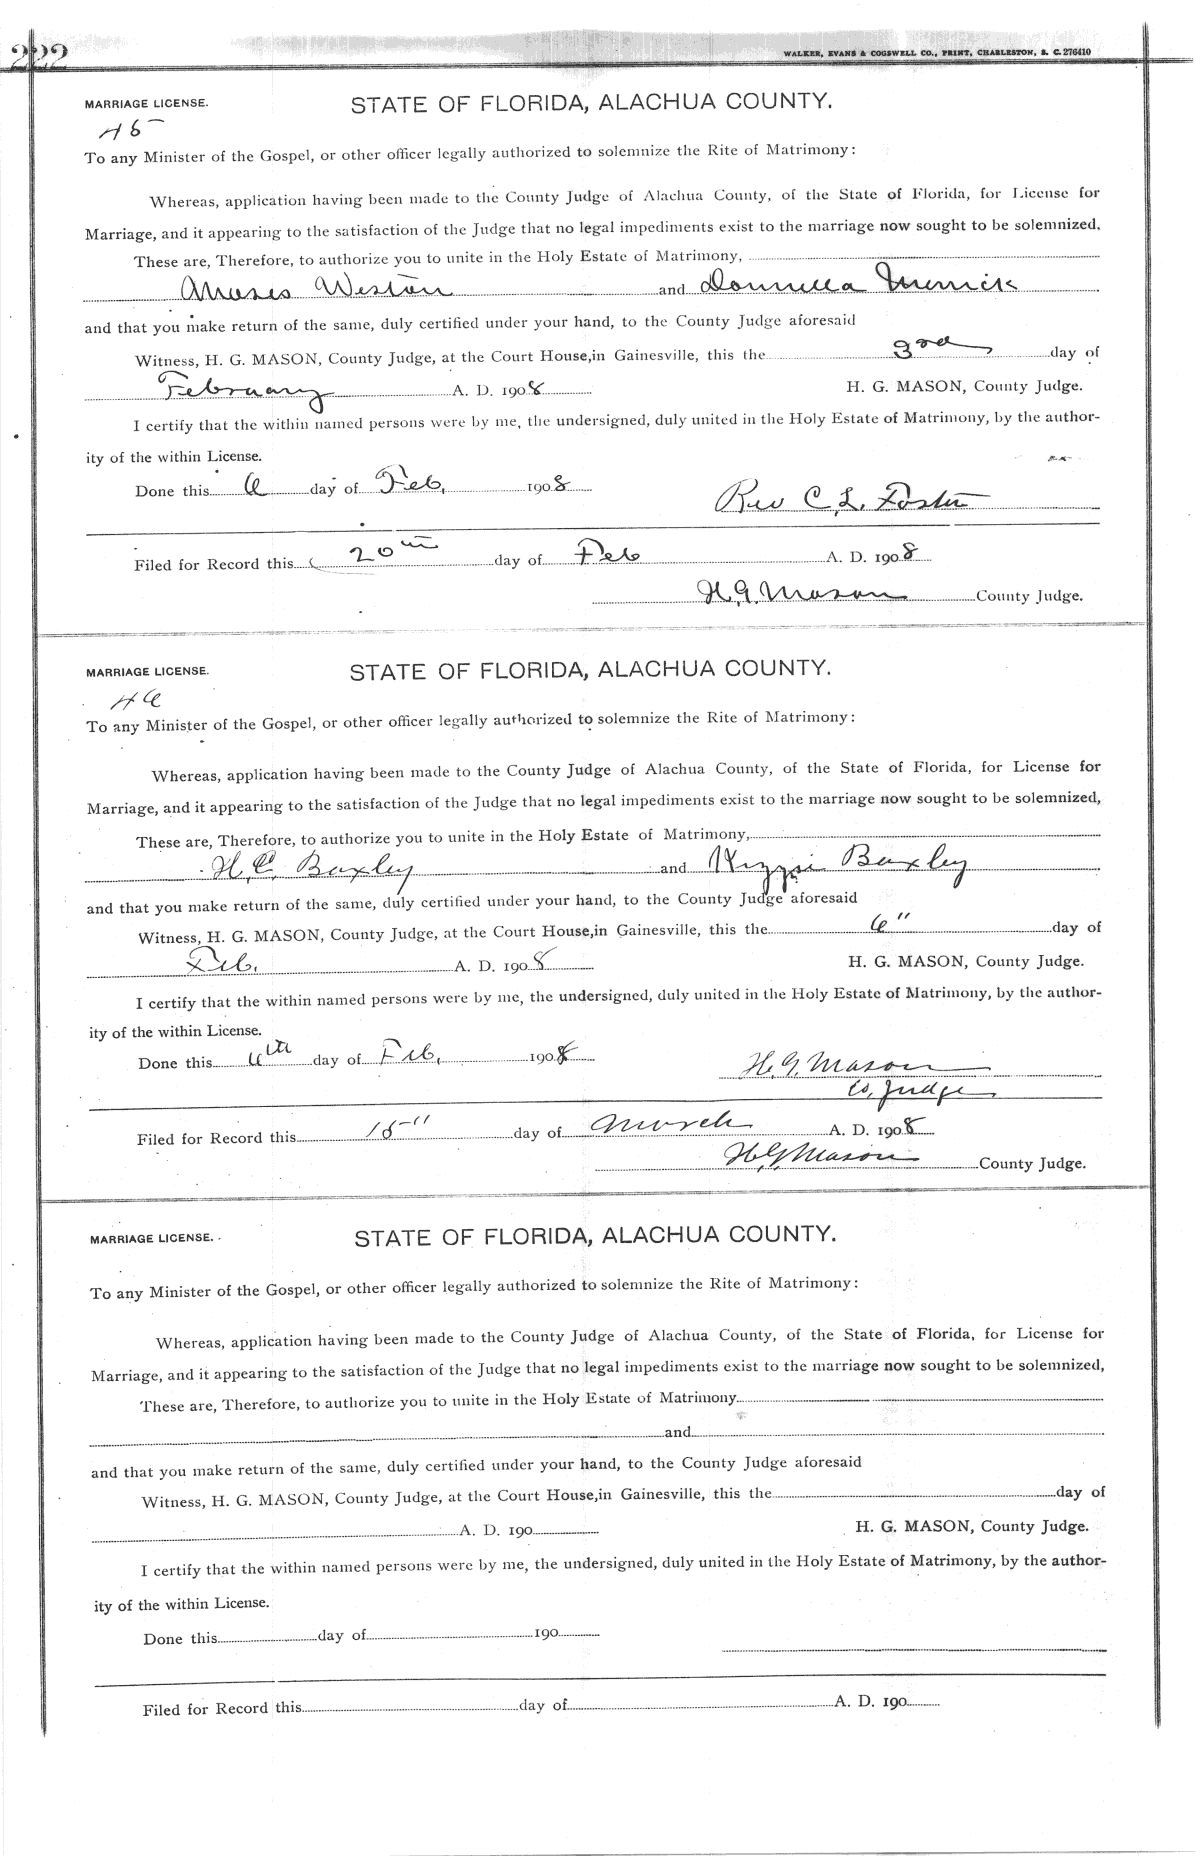 222
WALKER, EVANS & COGSWELL CO., PRINT, CHARLESTON, S. C. 276410
MARRIAGE LICENSE.
STATE OF FLORIDA, ALACHUA COUNTY.
45
To any Minister of the Gospel, or other officer legally authorized to solemnize the Rite of Matrimony:
Whereas, application having been made to the County Judge of Alachua County, of the State of Florida, for License for
Marriage, and it appearing to the satisfaction of the Judge that no legal impediments exist to the marriage now sought to be solemnized,
These are, Therefore, to authorize you to unite in the Holy Estate of Matrimony,
Moses Weston and Merrick
and that you make return of the same, duly certified under your hand, to the County Judge aforesaid
Witness, H. G. MASON, County Judge, at the Court House, in Gainesville, this the 3rd day of
February A. D. 1908 H. G. MASON, County Judge.
I certify that the within named persons were by me, the undersigned, duly united in the Holy Estate of Matrimony, by the author-
ity of the within License.
Done this 6 day of Feb, 1908
Rev C. L. Foster
Filed for Record this 20th day of Feb A. D. 1908
H. G. Mason County Judge.
MARRIAGE LICENSE.
STATE OF FLORIDA, ALACHUA COUNTY.
46
To any Minister of the Gospel, or other officer legally authorized to solemnize the Rite of Matrimony:
Whereas, application having been made to the County Judge of Alachua County, of the State of Florida, for License for
Marriage, and it appearing to the satisfaction of the Judge that no legal impediments exist to the marriage now sought to be solemnized,
These are, Therefore, to authorize you to unite in the Holy Estate of Matrimony,
H. C. Baxley and Kizzie Baxley
and that you make return of the same, duly certified under your hand, to the County Judge aforesaid
Witness, H. G. MASON, County Judge, at the Court House, in Gainesville, this the 6" day of
Feb. A. D. 1908 H. G. MASON, County Judge.
I certify that the within named persons were by me, the undersigned, duly united in the Holy Estate of Matrimony, by the author-
ity of the within License.
Done this 6th day of Feb. 1908
H. G. Mason
Co. Judge
Filed for Record this 15" day of March A. D. 1908
H. G. Mason County Judge.
MARRIAGE LICENSE.
STATE OF FLORIDA, ALACHUA COUNTY.
To any Minister of the Gospel, or other officer legally authorized to solemnize the Rite of Matrimony:
Whereas, application having been made to the County Judge of Alachua County, of the State of Florida, for License for
Marriage, and it appearing to the satisfaction of the Judge that no legal impediments exist to the marriage now sought to be solemnized,
These are, Therefore, to authorize you to unite in the Holy Estate of Matrimony
and
and that you make return of the same, duly certified under your hand, to the County Judge aforesaid
Witness, H. G. MASON, County Judge, at the Court House, in Gainesville, this the day of
A. D. 190 H. G. MASON, County Judge.
I certify that the within named persons were by me, the undersigned, duly united in the Holy Estate of Matrimony, by the author-
ity of the within License.
Done this day of 190
Filed for Record this day of A. D. 190